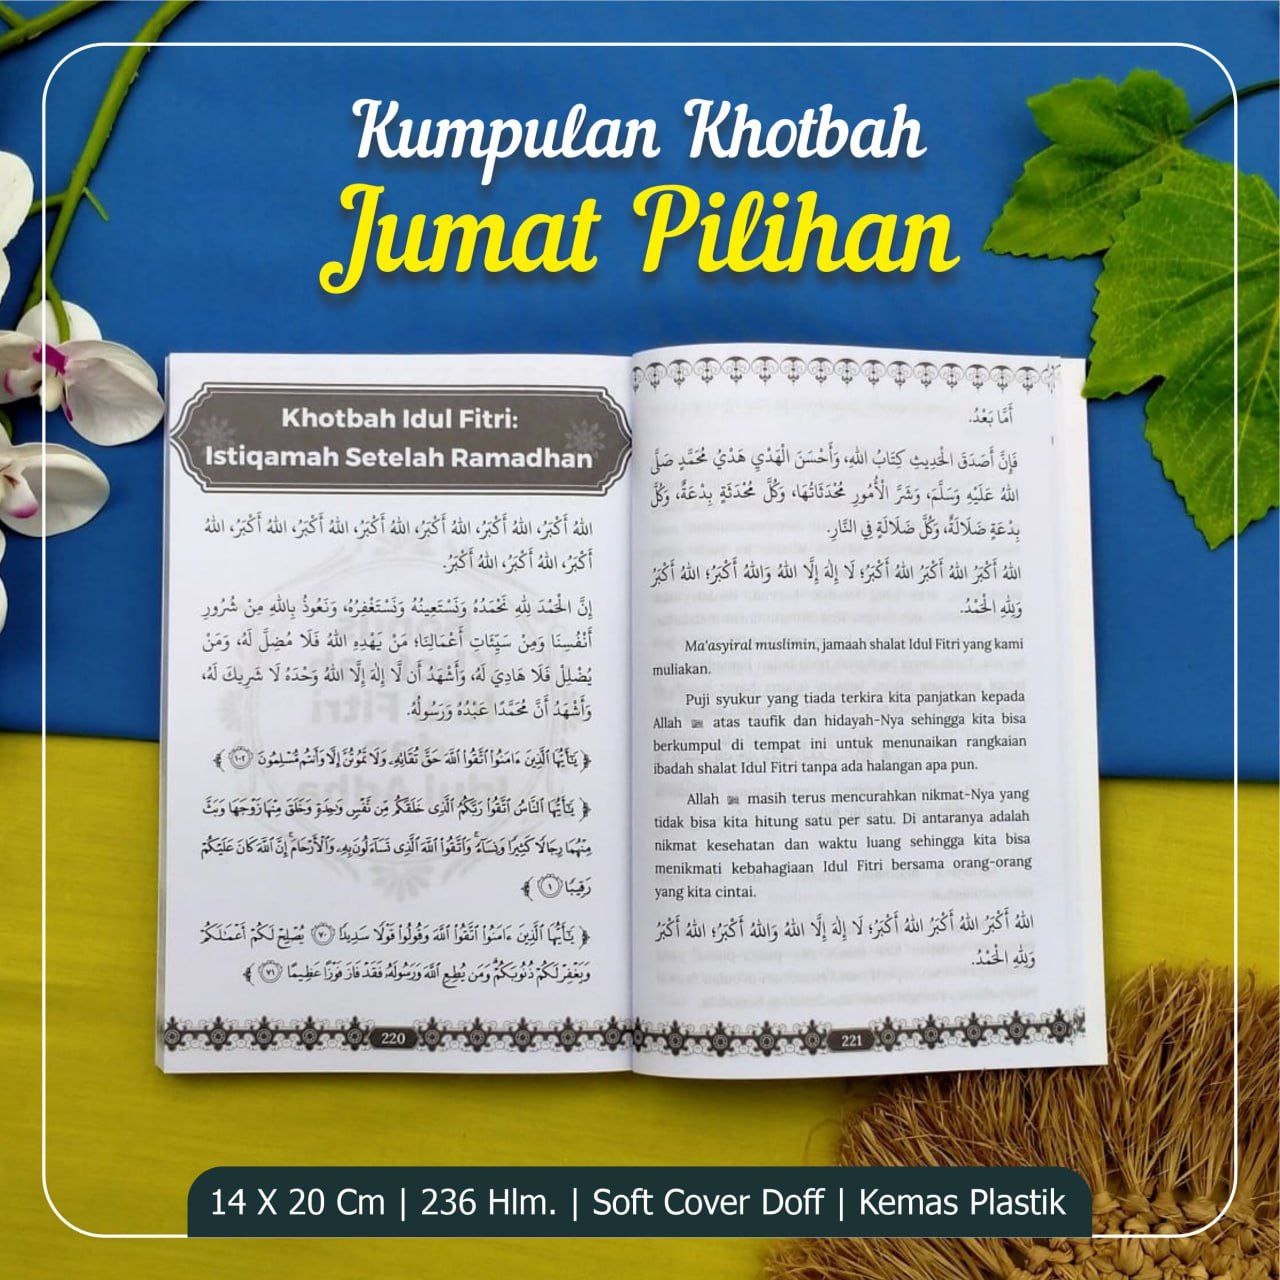 Kumpulan Khotbah
Jumat Pilihan
Khotbah Idul Fitri:
Istiqamah Setelah Ramadhan
اللهُ أَكْبَرُ، اللهُ أَكْبَرُ، اللهُ أَكْبَرُ، اللهُ أَكْبَرُ، اللهُ أَكْبَرُ، اللهُ أَكْبَرُ، اللهُ
أَكْبَرُ، اللهُ أَكْبَرُ، اللهُ أَكْبَرُ.
إِنَّ الْحَمْدَ لِلهِ نَحْمَدُهُ وَنَسْتَعِينُهُ وَنَسْتَغْفِرُهُ، وَنَعُوذُ بِاللهِ مِنْ شُرُورِ
أَنْفُسِنَا وَمِنْ سَيِّئَاتِ أَعْمَالِنَا؛ مَنْ يَهْدِهِ اللهُ فَلَا مُضِلَّ لَهُ، وَمَنْ
يُضْلِلْ فَلَا هَادِيَ لَهُ، وَأَشْهَدُ أَن لَّا إِلٰهَ إِلَّا اللهُ وَحْدَهُ لَا شَرِيكَ لَهُ،
وَأَشْهَدُ أَنَّ مُحَمَّدًا عَبْدُهُ وَرَسُولُهُ.
﴿ يَـٰٓأَيُّهَا ٱلَّذِينَ ءَامَنُوا۟ ٱتَّقُوا۟ ٱللَّهَ حَقَّ تُقَاتِهِۦ وَلَا تَمُوتُنَّ إِلَّا وَأَنتُم مُّسْلِمُونَ ١٠٢ ﴾
﴿ يَـٰٓأَيُّهَا ٱلنَّاسُ ٱتَّقُوا۟ رَبَّكُمُ ٱلَّذِى خَلَقَكُم مِّن نَّفْسٍ وَٰحِدَةٍ وَخَلَقَ مِنْهَا زَوْجَهَا وَبَثَّ
مِنْهُمَا رِجَالًا كَثِيرًا وَنِسَآءً ۚ وَٱتَّقُوا۟ ٱللَّهَ ٱلَّذِى تَسَآءَلُونَ بِهِۦ وَٱلْأَرْحَامَ ۚ إِنَّ ٱللَّهَ كَانَ عَلَيْكُمْ
رَقِيبًا ١ ﴾
﴿ يَـٰٓأَيُّهَا ٱلَّذِينَ ءَامَنُوا۟ ٱتَّقُوا۟ ٱللَّهَ وَقُولُوا۟ قَوْلًا سَدِيدًا ٧٠ يُصْلِحْ لَكُمْ أَعْمَـٰلَكُمْ
وَيَغْفِرْ لَكُمْ ذُنُوبَكُمْ ۗ وَمَن يُطِعِ ٱللَّهَ وَرَسُولَهُۥ فَقَدْ فَازَ فَوْزًا عَظِيمًا ٧١ ﴾
220
أَمَّا بَعْدُ.
فَإِنَّ أَصَدَقَ الْحَدِيثِ كِتَابُ اللهِ، وَأَحْسَنَ الْهَدْيِ هَدْيُ مُحَمَّدٍ صَلَّى
اللهُ عَلَيْهِ وَسَلَّمَ، وَشَرَّ الْأُمُورِ مُحْدَثَاتُهَا، وَكُلَّ مُحْدَثَةٍ بِدْعَةٌ، وَكُلَّ
بِدْعَةٍ ضَلَالَةٌ، وَكُلَّ ضَلَالَةٍ فِي النَّارِ.
اللهُ أَكْبَرُ اللهُ أَكْبَرُ اللهُ أَكْبَرُ؛ لَا إِلٰهَ إِلَّا اللهُ وَاللهُ أَكْبَرُ؛ اللهُ أَكْبَرُ
وَلِلهِ الْحَمْدُ.
Ma'asyiral muslimin, jamaah shalat Idul Fitri yang kami
muliakan.
Puji syukur yang tiada terkira kita panjatkan kepada
Allah ﷻ atas taufik dan hidayah-Nya sehingga kita bisa
berkumpul di tempat ini untuk menunaikan rangkaian
ibadah shalat Idul Fitri tanpa ada halangan apa pun.
Allah ﷻ masih terus mencurahkan nikmat-Nya yang
tidak bisa kita hitung satu per satu. Di antaranya adalah
nikmat kesehatan dan waktu luang sehingga kita bisa
menikmati kebahagiaan Idul Fitri bersama orang-orang
yang kita cintai.
اللهُ أَكْبَرُ اللهُ أَكْبَرُ اللهُ أَكْبَرُ؛ لَا إِلٰهَ إِلَّا اللهُ وَاللهُ أَكْبَرُ؛ اللهُ أَكْبَرُ
وَلِلهِ الْحَمْدُ.
221
14 X 20 Cm | 236 Hlm. | Soft Cover Doff | Kemas Plastik